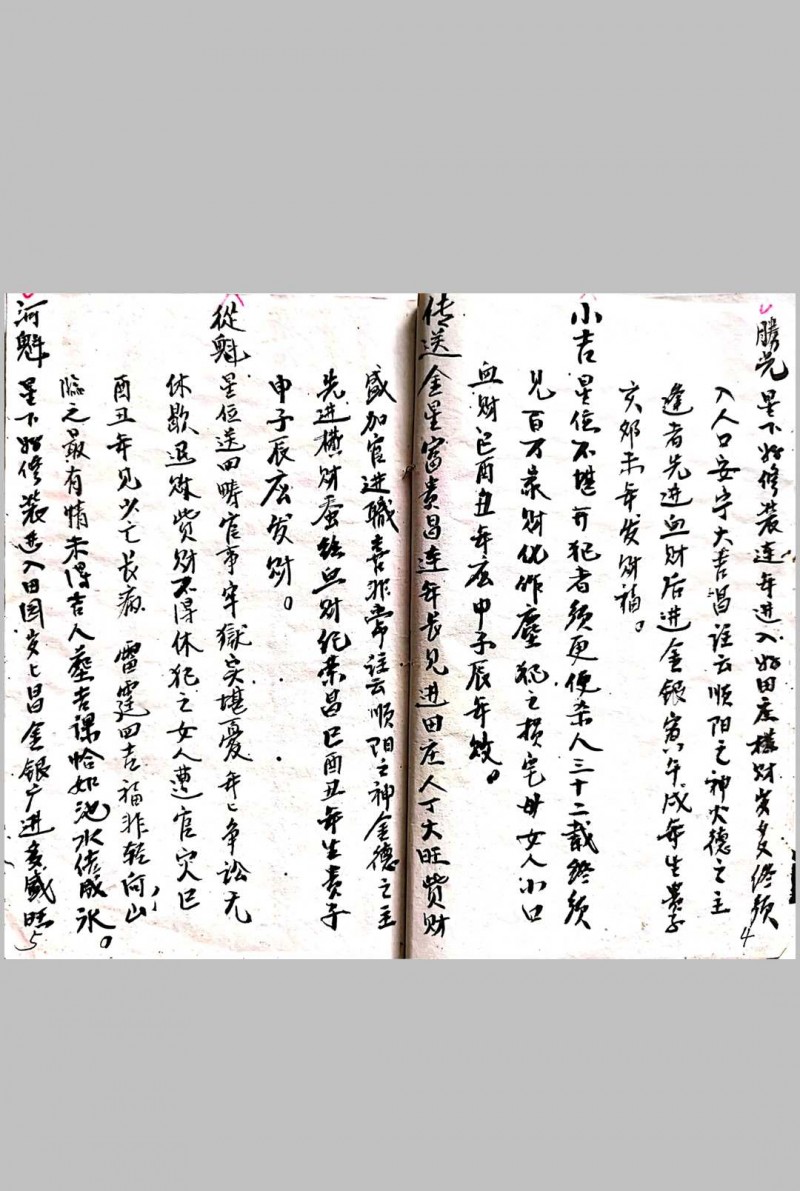 勝光 星下好修裝连年进入好田庄横财岁友终须
入人口安宁大吉昌註云顺阳之神火德之主
逢者先进血财后进金银寅午戌年生贵子
亥卯未年发财福。
4
小吉星位不堪可犯者须更便杀人三十二载终须
见百万家财化作塵犯之损宅母女人小口
血财巳酉丑年应甲子辰年败。
传送金星富贵昌连年长见进田庄人丁大旺赀财
盛加官进職喜非常註云顺阳之神金德之主
先进横财蚕丝血财纪荣昌巳酉丑年生贵子
申子辰应发财。
從魁星位送田疇官事牢獄实堪憂年々争訟无
休歇退财赀财不得休犯之女人遭官灾巳
酉丑年见少亡长病 雷霆四吉福非轻向山
臨之最有情未得吉人塟吉课恰如池水作成冰。
河魁 星下好修裝进入田园岁々昌金银广进多盛旺
5